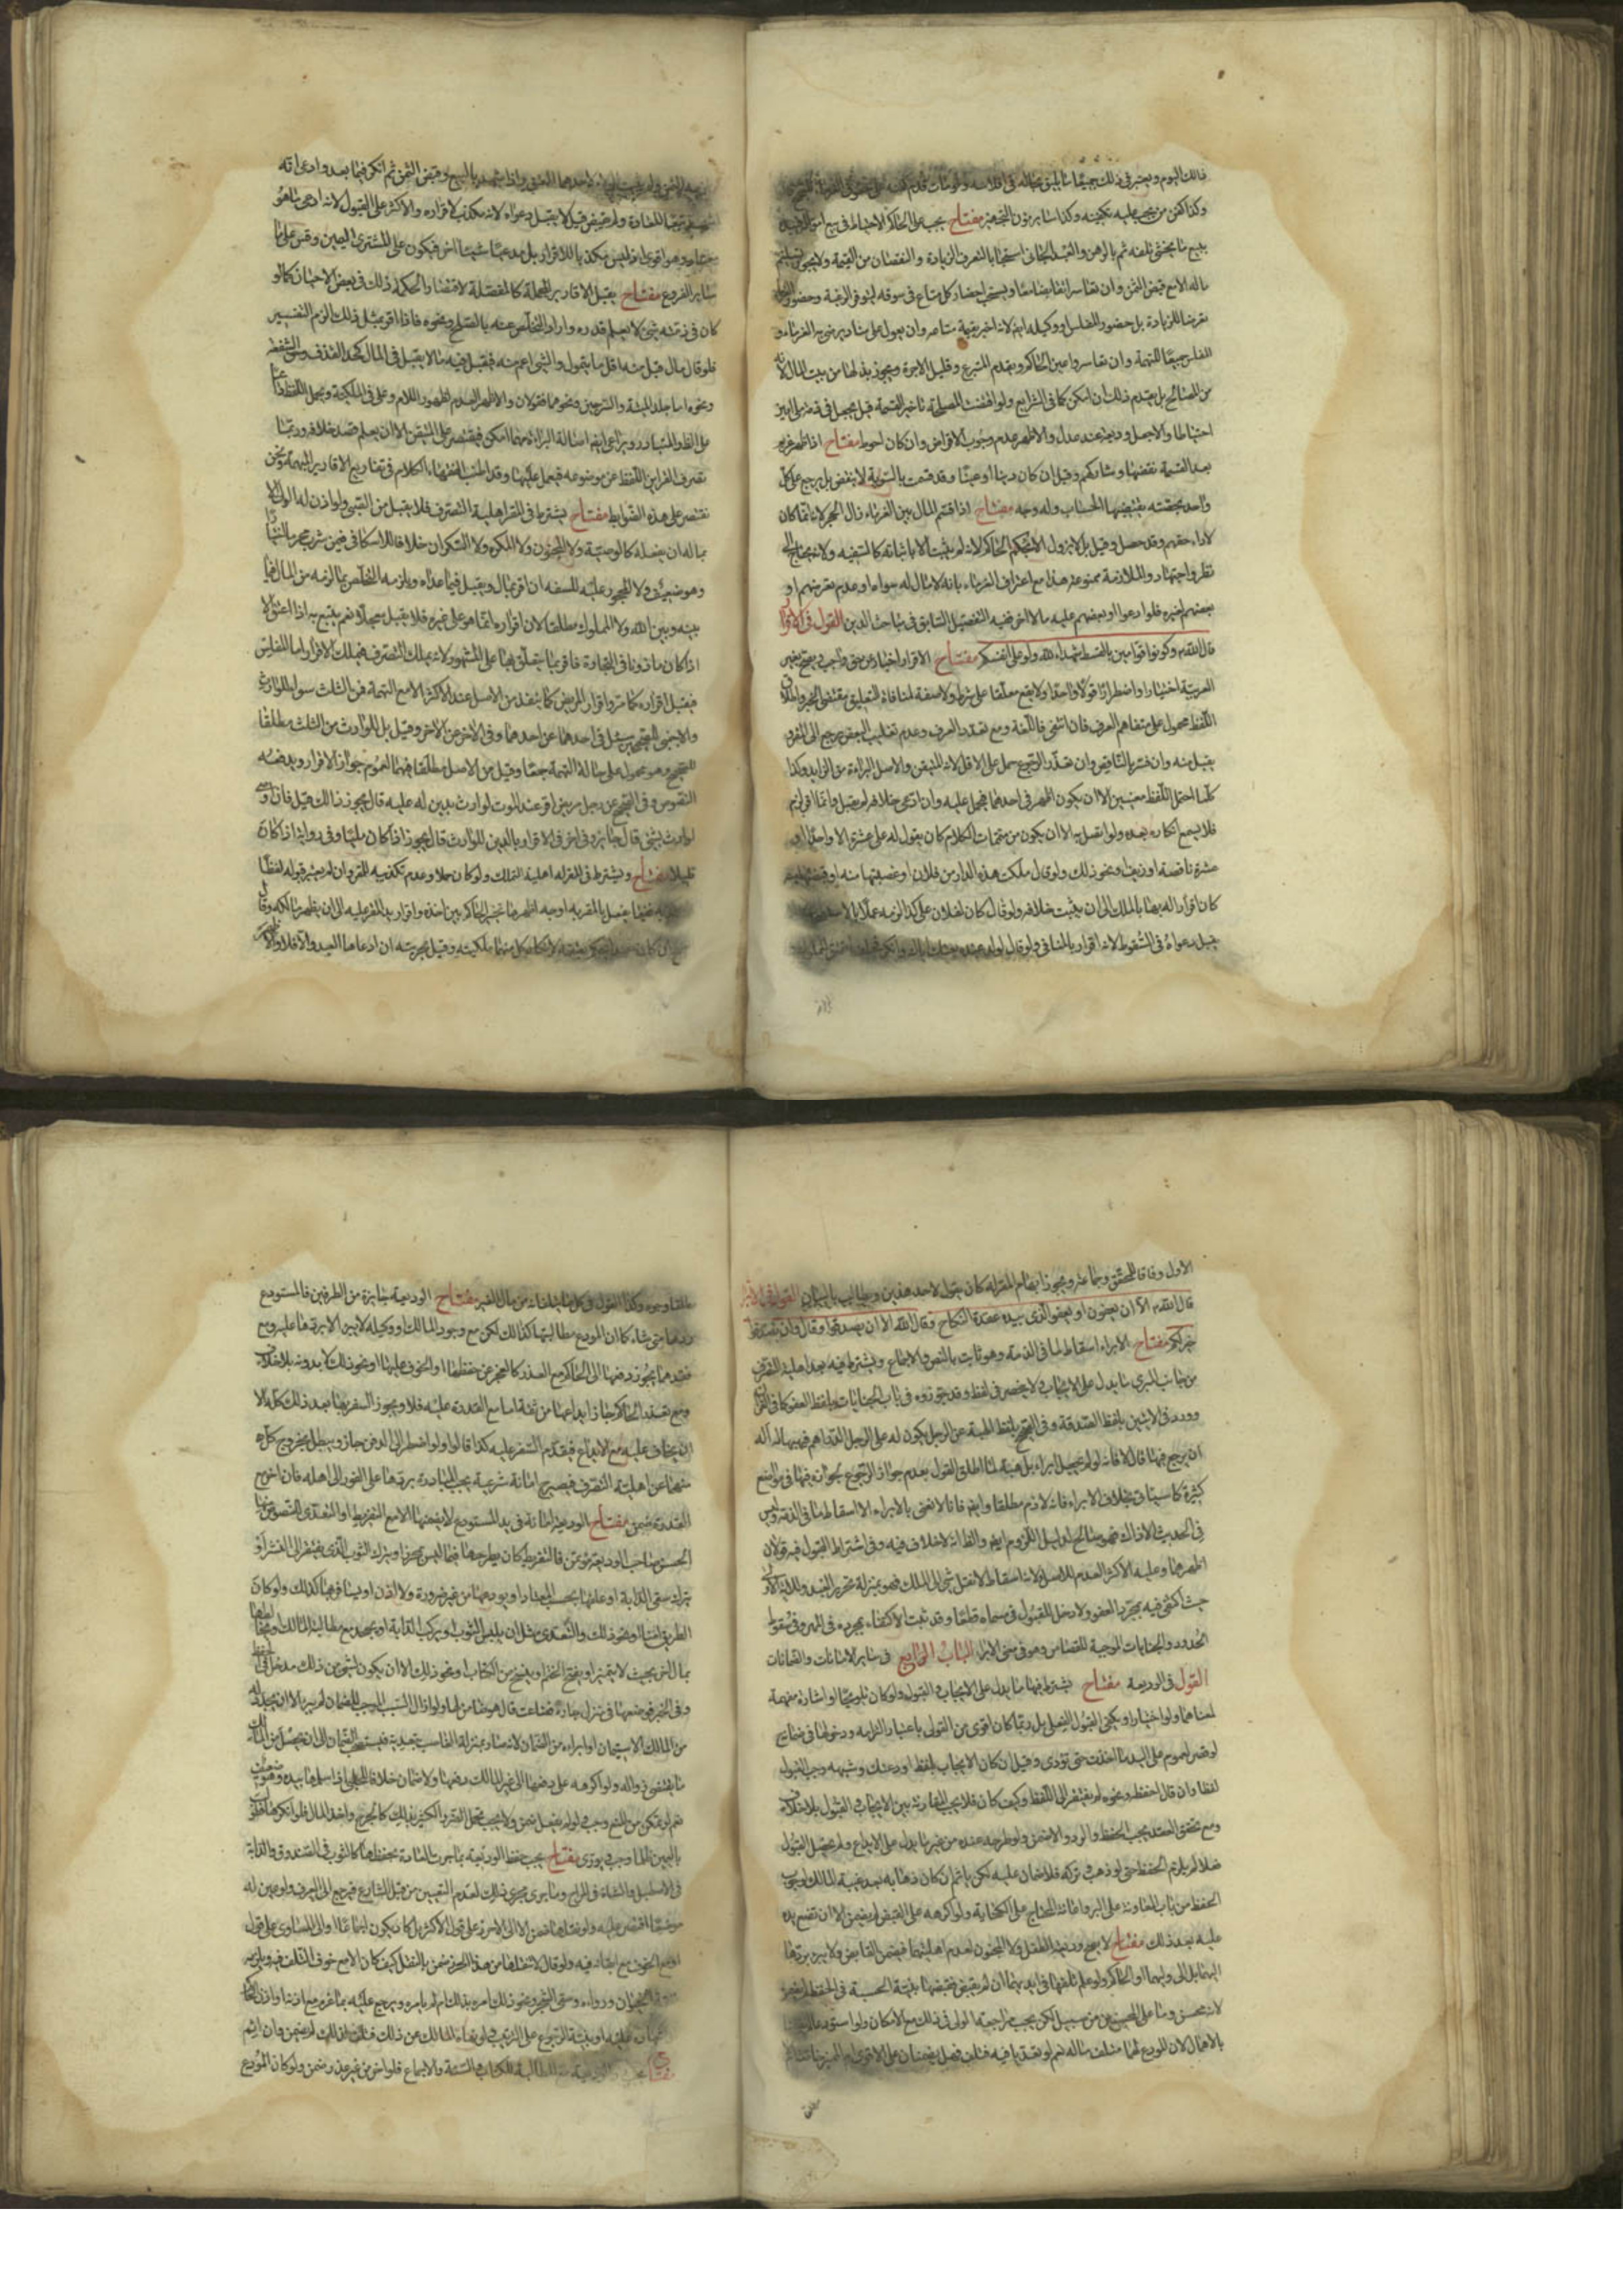 ذلك اليوم ويعتبر في ذلك جميعا ما يليق بحاله في افلاسه ولو مات قدم كفنه على حقوق الغرماء
وكذا كفن من يجب عليه تكفينه وكذا ساير مؤن التجهيز مفتاح يجب على الحاكم الاحتياط في بيع امواله
ببيع ما يخشى تلفه ثم بالرهن والعبد الجاني استحبابا لتعرف الزيادة و النقصان من القيمة ولا يجوز تسليم
ماله الا مع قبض الثمن وان تعاسرا تقابضا معا ويستحب احضار كل متاع في سوقه ليتوفر الرغبة وحضور
تعرضا للزيادة بل حضور المفلس او وكيله ايضا لانه اخبر بقيمة متاعه وان يعول على مناد يرضى به الغرماء و
المفلس جميعا للتهمة وان تعاسروا عين الحاكم ويقدم المتبرع و قليل الاجرة ويجوز بذلها من بيت المال لانه
من المصالح بل يقدم ذلك ان امكن كما في الشرايع ولو اقتضت المصلحة تاخير القسمة قيل يجعل في ذمة ملى
احتياطا والا جعل وديعة عند عدل والاظهر عدم وجوب الاقراض وان كان احوط مفتاح اذا ظهر غريم
بعد القسمة نقضها وشاركهم وقيل ان كان دينا او عينا وقد قسمت بالسوية لا ينقض بل يرجع على كل
واحد بحصته يقتضيها الحساب وله وجه مفتاح اذا قسم المال بين الغرماء زال الحجر لانه انما كان
لاداء حقهم وقد حصل وقيل بل لا يزول الا بحكم الحاكم لانه لم يثبت الا باثباته كالسفيه ولانه يحتاج الى
نظر واجتهاد والملازمة ممنوعة هذا مع اعتراف الغرماء بانه لا مال له سواه او عدم تعرضهم او
بعضهم لغيره فلو ادعوا او بعضهم عليه مالا اخر ففيه التفصيل السابق في مباحث الدين القول في الاقرار
قال الله تعالى وكونوا قوامين بالقسط شهداء لله ولو على انفسكم مفتاح الاقرار اخبار عن حق واجب ويصح بغير
العربية اختيارا واضطرارا قولا واحدا ولا يقع معلقا على شرط ولا صفة لمنافاة التعليق مقتضى الخبر واطلاق
اللفظ محمول على متفاهم العرف فان انتفى فاللغة ومع تعدد العرف وعدم تغليب البعض يرجع الى المقر و
يقبل منه وان فسر بالناقص وان تعذر الرجوع حمل على الاقل لانه المتيقن والاصل البراءة من الزايد وكذا
كلما احتمل اللفظ معنيين الا ان يكون اظهر في احدهما فيحمل عليه وان ادعى خلافه لم يقبل واذا اقر لزم
فلا يسمع انكاره بعده ولو اتصل به الا ان يكون من متممات الكلام كان يقول له على عشرة الا واحدا او
عشرة ناقصة او زيفا ونحو ذلك ولو قال ملكت هذه الدار من فلان او غصبتها منه او قبضتها منه
كان اقرارا له بها بالملك الى ان يثبت خلافه ولو قال كان لفلان على كذا لزمه عملا بالاستصحاب
قبل دعواه في السقوط لانه اقرار بالمنافي ولو قال لولد عبده بعتك اباك وانكر
لاحدهما اللغوى واذا شهد بالبيع وقبض الثمن ثم انكر فيما بعد وادعى انه
تبعا للعادة ولم يقبض قيل لا يقبل دعواه لانه مكذب لاقراره والاكثر على القبول لانه ادعى ما هو
معتاد وهو اقوى اذ ليس مكذبا للاقرار بل مدعيا شيئا اخر فيكون على المشترى اليمين وقس على هذا
ساير الفروع مفتاح يقبل الاقارير المجملة كالمفصلة لاقتضاء الحكمة ذلك في بعض الاحيان كما لو
كان في ذمته شئ لا يعلم قدره واراد التخلص عنه بالصلح ونحوه فاذا اقر بمثل ذلك الزم التفسير
فلو قال مال قبل منه اقل ما يتمول والشئ اعم منه فيقبل فيه مالا يقبل في المال كحد القذف وحق الشفعة
ونحوه اما جلد الميتة والسرجين ونحوهما فقولان والاظهر العدم لظهور اللام وعلى في الملكية ويحمل اللفظ دائما
على الظاهر المتبادر ويراعى ايضا اصالة البراءة مهما امكن فيقتصر على المتيقن الا ان يعلم قصد خلافه وربما
تصرف القراين اللفظ عن موضوعه فيعمل عليها وقد اطنب الفقهاء الكلام في تفاريع الاقارير المبهمة ونحن
نقتصر على هذه الضوابط مفتاح يشترط في المقر اهلية التصرف فلا يقبل من الصبى ولو اذن له الولى الا
بما له ان يفعله كالوصية ولا المجنون ولا المكره ولا السكران خلافا للاسكافى فيمن شرب محرما
وهو ضعيف ولا المحجور عليه للسفه ان اقر بمال ويقبل فيما عداه ويلزمه التخلص مما لزمه من المال فيما
بينه وبين الله ولا المملوك مطلقا لان اقراره انما هو على غيره فلا يقبل معجلا نعم يتبع به اذا اعتق الا
اذا كان ماذونا في التجارة فاقر بما يتعلق بها على المشهور لانه يملك التصرف فيملك الاقرار اما المفلس
فيقبل اقراره كما مر واقرار المريض كما ينفذ من الاصل عند الاكثر الا مع التهمة فمن الثلث سواء للوارث
والاجنبى للصحيحين يستدل في احدهما عن احدهما وفي الاخر عن الاخر وقيل بل للوارث من الثلث مطلقا
للصحيح وهو محمول على حالة التهمة جمعا وقيل من الاصل مطلقا فيهما لعموم جواز الاقرار ويدفعه
النصوص وفي الصحيح عن رجل مريض اقر عند الموت لوارث بدين له عليه قال يجوز ذلك قيل فان اوصى
لوارث بشئ قال جايز وفي اخر في الاقرار بالدين للوارث قال يجوز اذا كان مليا وفي رواية اذا كان
قليلا مفتاح ويشترط في المقر له اهلية التملك ولو كان حملا وعدم تكذيبه للمقر وان لم يعتبر قبوله لفظا
يفصل المقر به اوجه اظهرها تخير الحاكم بين اخذه واقراره بيد المقر عليه الى ان يظهر مالكه وقال
ان كان عبدا حكم بعتقه لانكار كل منهما ملكيته وقيل بحريته ان ادعاها العبد والا فلا والاصح
الاول وفاقا للمحقق وجماعة ويجوز ابهام المقر له كان يقول لاحد هذين ويطالب بالبيان القول في الابراء
قال الله تعالى الا ان يعفون او يعفو الذى بيده عقدة النكاح وقال الله الا ان يصدقوا وقال وان تصدقوا
خير لكم مفتاح الابراء اسقاط لما في الذمة وهو ثابت بالنص والاجماع ويشترط فيه بعد اهلية التصرف
من جانب المبرئ ما يدل على الايجاب ولا ينحصر في لفظ وقد جوزوه في باب الجنايات بلفظ العفو كما في القران
وورد في الايتين بلفظ الصدقة وفي الصحيح بلفظ الهبة عن الرجل يكون له على الرجل الدراهم فيهبها له اله
ان يرجع فيها قال لا فانه لو لم يجعل ابراء بل هبة لما اطلق القول بعدم جواز الرجوع لجوازه فيها في مواضع
كثيرة كما سياتى بخلاف الابراء فانه لازم مطلقا وايضا فانا لا نعنى بالابراء الا اسقاط ما في الذمة وليس
في الحديث الا ذاك فهو صالح لدليل اللزوم ايضا والظاهر انه لا خلاف فيه وفي اشتراط القبول فيه قولان
اظهرهما وعليه الاكثر العدم للاصل ولانه اسقاط لا نقل شئ الى الملك فهو بمنزلة تحرير العبد ولدلالة الاية
حيث اكتفى فيه بمجرد العفو ولا دخل للقبول في مسماه قطعا وقد ثبت الاكتفاء بمجرده في المهر وفي سقوط
الحدود والجنايات الموجبة للقصاص وهو في معنى الابراء الباب الرابع في ساير الامانات والضمانات
القول في الوديعة مفتاح يشترط فيها ما يدل على الايجاب والقبول ولو كان تلويحا او اشارة مفهمة
لمعناهما ولو اختيارا ويكفى القبول الفعلى بل ربما كان اقوى من القولى باعتبار التزامه ودخولها في ضمانه
لو قصر لعموم على اليد ما اخذت حتى تؤدى وقيل ان كان الايجاب بلفظ اودعتك وشبهه وجب القبول
لفظا وان قال احفظه ونحوه لم يفتقر الى اللفظ وكيف كان فلا يجب المقارنة بين الايجاب والقبول بلا خلاف
ومع تحقق العقد يجب الحفظ والرد والا ضمن ولو طرحه عنده من غير ما يدل على الايداع ولم يحصل القبول
فعلا لم يلزم الحفظ حتى لو ذهب وتركه فلا ضمان عليه لكن ياثم ان كان ذهابه بعد غيبة المالك لوجوب
الحفظ من باب المعاونة على البر واعانة المحتاج على الكفاية ولو اكرهه على القبض لم يضمن الا ان تضع يده
عليه بعد ذلك مفتاح لا يصح وديعة الطفل ولا المجنون لعدم اهليتهما فيضمن القابض ولا يبرء بردها
اليهما بل الى وليهما او الحاكم ولو علم تلفها في ايديهما ان لم يقبض فقبضها بنية الحسبة في الحفظ لم يضمن
لانه محسن وما على المحسنين من سبيل لكن يجب مراجعة الولى في ذلك مع الامكان ولو استودعا
بالاهمال لان المودع لهما متلف ماله نعم لو تعديا فيه فتلف فهل يضمنان على الاقوى
وكذا القول في كل من مال الغير مفتاح الوديعة جايزة من الطرفين فالمستودع
يردها متى شاء كما ان المودع مطالبتها كذلك لكن مع وجود المالك او وكيله لا يبرء الا بردها عليه ومع
فقدهما يجوز دفعها الى الحاكم مع العذر كالعجز عن حفظها او الخوف عليها او نحو ذلك لا بدونه بلا خلاف
ومع تعذر الحاكم جاز ايداعها من ثقة اما مع القدرة عليه فلا ويجوز السفر بها بعد ذلك كله الا
ان يخاف عليه مع الايداع فيقدم السفر عليه كذا قالوا ولو اضطر الى الدفن جاز ويبطل بخروج كل
منهما عن اهلية التصرف فيصير امانة شرعية يجب المبادرة بردها على الفور الى اهله فان اخر مع
القدرة ضمن مفتاح الوديعة امانة في يد المستودع لا يضمنها الا مع التفريط او التعدى للنصوص منها
الحسن صاحب الوديعة مؤتمن فالتفريط كان يطرحها فيما ليس بحرز او يترك الثوب الذى يفتقر الى النشر او
يترك سقى الدابة او علفها بحسب المعتاد او يودعها من غير ضرورة ولا اذن او يسافر بها كذلك ولو كان
الطريق امنا ونحو ذلك والتعدى مثل ان يلبس الثوب او يركب الدابة او يجحد مع مطالبة المالك او يخلطها
بمال اخر بحيث لا يتميز او يفتح الختم او ينسخ من الكتاب او نحو ذلك الا ان يكون لشئ من ذلك مدخل في الحفظ
وفي الخبر فوضعها في منزل جاره فضاعت قال هو ضامن لها ولو ازال السبب الموجب للضمان لم يبرء الا ان يجدد له
من المالك الاستيمان او ابراءه من الضمان لانه صار بمنزلة الغاصب بتعديه فيستصحب الضمان الى ان يحصل من المالك
ما يقتضى زواله ولو اكرهه على دفعها الى غير المالك دفعها ولا ضمان خلافا للحلبى اذا سلمها بيده وهو ضعيف
نعم لو تمكن من الدفع وجب فلو لم يفعل ضمن ولا يجب تحمل الضرر الكثير بذلك كالجرح واخذ المال فلو انكرها فطولب
باليمين ظلما وجب ويورى مفتاح يجب حفظ الوديعة بما جرت العادة بحفظها كالثوب في الصندوق والدابة
في الاصطبل والشاة في المراح وما يجرى مجرى ذلك لعدم التعيين من قبل الشارع فيرجع الى العرف ولو عين له
موضعا اقتصر عليه ولو نقلها ضمن الا الى الاحرز على قول الاكثر بل كاد يكون اجماعا او الى المساوى على قول
او مع الخوف مع ابقائه فيه ولو قال لا تنقلها من هذا الحرز ضمن بالنقل كيف كان الا مع خوف التلف فيه ويلزمه
الحيوان ودواءه وسقى الشجر ونحو ذلك امره بذلك ام لم يامره ويرجع عليه بما غرم مع اذنه او اذن الحاكم
او بنية الرجوع على الترتيب ولو نهاه المالك عن ذلك فتلف بذلك لم يضمن وان اثم
مفتاح يجب المطالبة للكتاب والسنة والاجماع فلو اخر من غير عذر ضمن ولو كان المودع